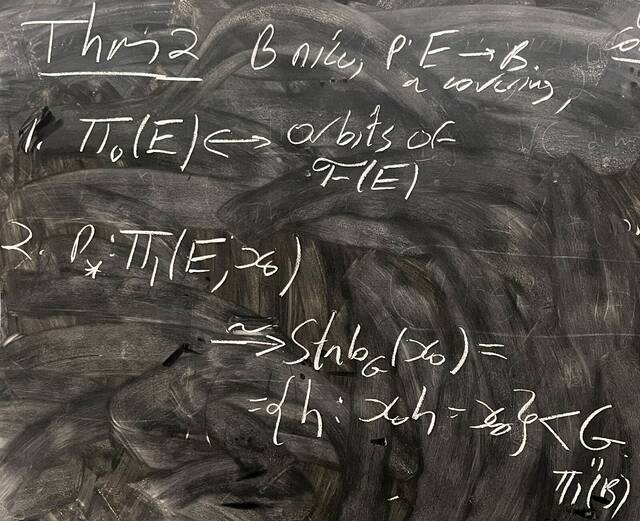 Thm 2 B nice, p: E → B.
a covering,
1. π₀(E) ↔ orbits of
𝓕(E)
2. P_* : π₁(E, x₀)
≅→ Stab_G(x₀) =
= {h : x₀h = x₀} < G
"
π₁(B)